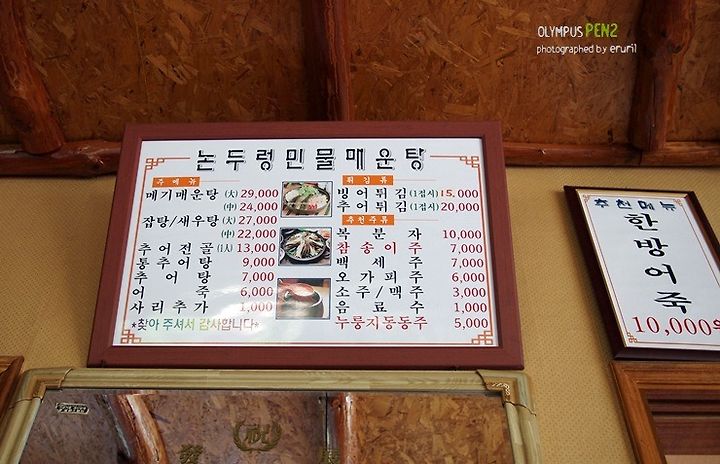 OLYMPUS PEN2
photographed by eruril
논두렁민물매운탕
주메뉴
메기매운탕 (大) 29,000
(中) 24,000
잡탕/새우탕 (大) 27,000
(中) 22,000
추어전골 (1人) 13,000
통추어탕 9,000
추어탕 7,000
어죽 6,000
사리추가 1,000
*찾아 주셔서 감사합니다*
튀김류
빙어튀김 (1접시) 15,000
추어튀김 (1접시) 20,000
추천주류
복분자 10,000
참송이주 7,000
백세주 7,000
오가피주 6,000
소주/맥주 3,000
음료수 1,000
누룽지동동주 5,000
추천메뉴
한방어죽
10,000원
祝
發